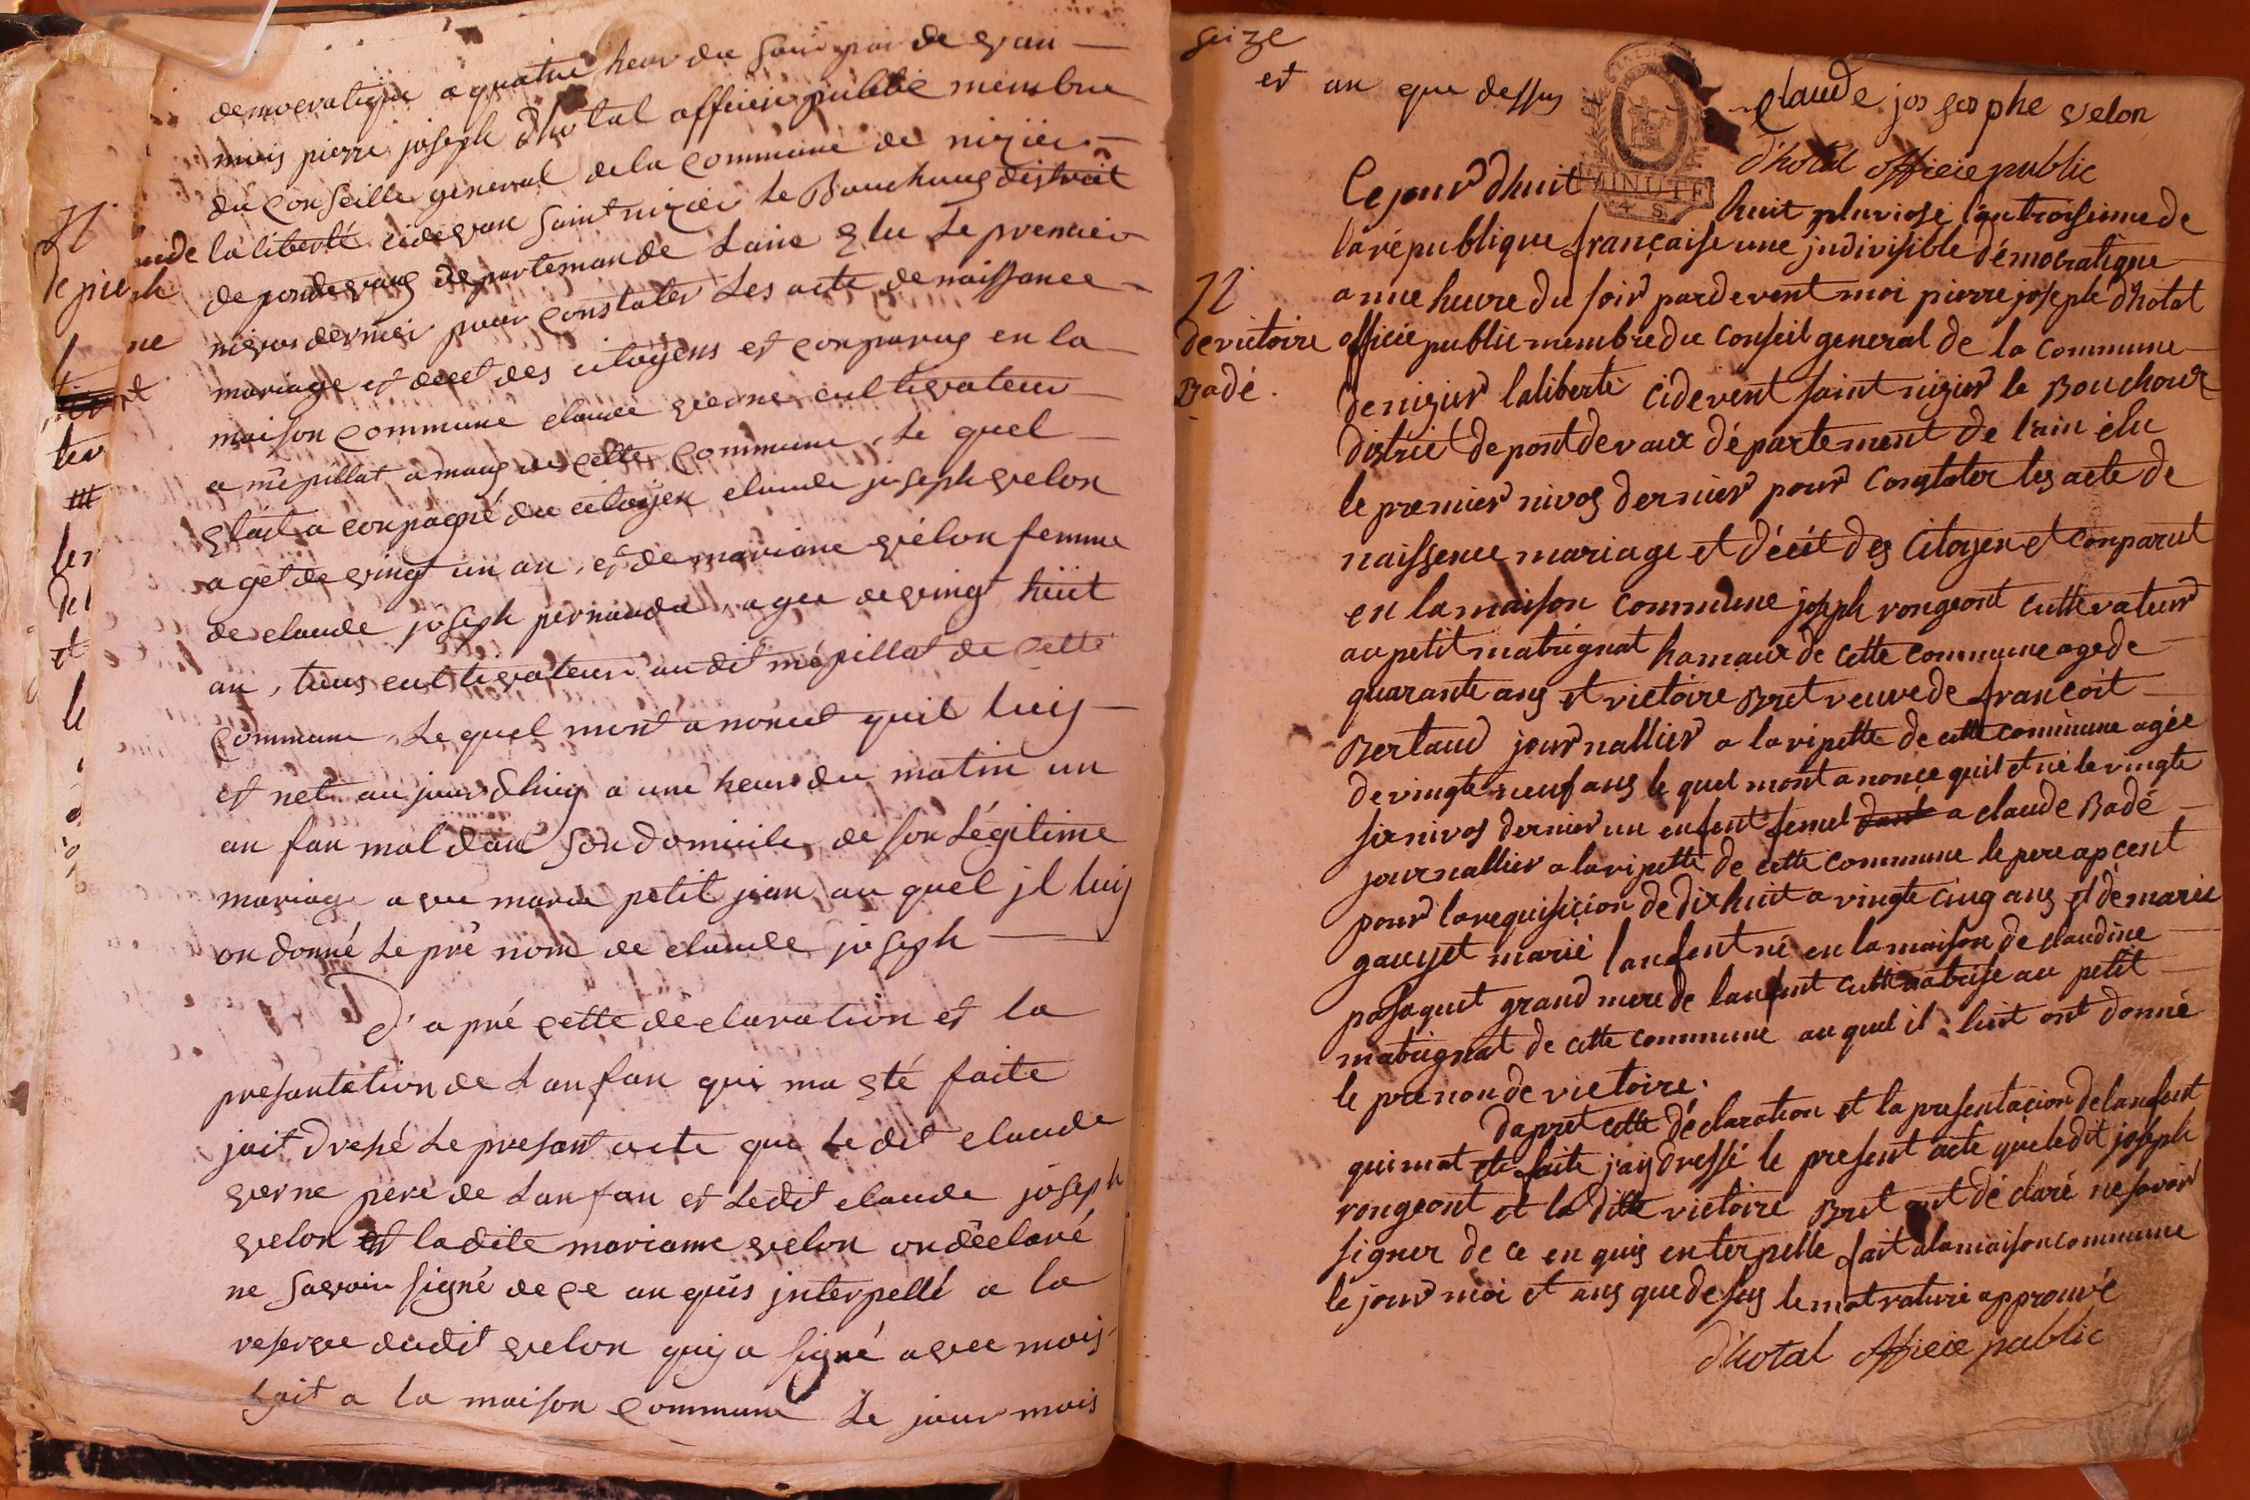 democratique a quatre heur du soir par de van
mois pierre joseph d'hotal officié public membre
du conseille general de la commune de nizier
la liberté cidevan saint nizier le Bouchoug district
de pondevaug departeman de Laine elu Le premier
nivos dernier pour constater Les acte de naissance
mariage et decet des citoyens et conparug en la
maison commune claude verne cultivateur
a mépillat amaug de cette commune, Le quel
etait aconpagné du citoyen claude joseph velon
aget de vingt un an, et de mariane vélon femme
de claude joseph pernaude, agee de vingt huit
an, tous cultivateur audit mépillat de cette
commune, Le quel mont anoncet quil luij
et net aujourdhuij a une heur du matin un
an fan mal dan son domicile de son Légitime
mariage avec marie petit jean au quel jl luij
on donné Le pré nom de claude joseph
D'apré cette déclaration et la
présantation de Lanfan qui ma eté faite
jait dresé Le presant acte que Le dit claude
verne pere de Lanfan et Ledit claude joseph
velon et ladite mariane velon on déclaré
ne savoir signé de ce anquis jnterpellé a la
reserve dudit velon quij a signé avec mois
fait a la maison commune Le jour mois
seize
et an que dessus claude jos gosphe velon
d'hotal officie public
MINUTE
4 S.
Ce jourd'huit huit pluviose lan troisieme de
la république française une jndivisible démocratique
N
de victoire
Badé.
a une heure du soir pardevent moi pierre joseph d'hotal
officie public membre du conseil general de la commune
de nizier laliberté cidevent saint nizier le Bouchoux
district de pont de vaux département de lain élu
le premier nivos dernier pour constater les acte de
naissence mariage et décét des citoyen et conparut
en la maison commune joseph rongeont cultivateur
au petit matrignat hamaux de cette commune age de
quarante ans et victoire Bret veuve de francoit
Bertaud journallier a la ripette de cette commune agée
de vingte neuf ans le quel mont anonce quil et né le vingte
six nivos dernier un enfent femel dont a claude Badé
journallier a la ripette de cette commune le pere apcent
pour la requisicion de dix huit a vingte cinq ans et de marie
gauyet marié lanfent né en la maison de claudine
pasaquit grand mere de lanfent cultivatrise au petit
matrignat de cette commune au quel il luit ont donné
le prenon de victoire.
dapret cette déclaration et la presentacion de lanfent
qui mat ete faite jaij dressé le present acte que ledit joseph
rongeont et la ditte victoire Bret ont déclaré ne savoir
signer de ce en quis enterpelle fait a la maison commune
le jour moi et ans que desus le mot raturé approuvé
d'hotal officie public